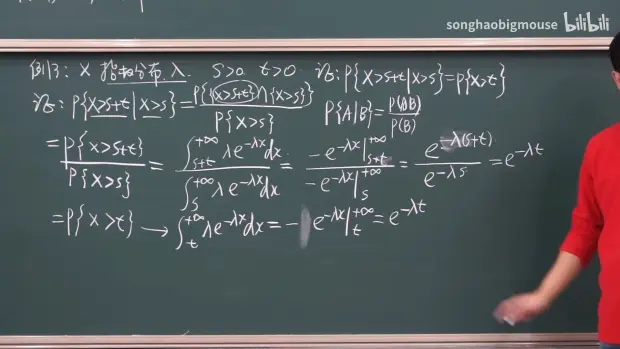 songhaobigmouse bilibili
例3: X 指数分布 λ. s>0 t>0 证: P{X>s+t|X>s}=P{X>t}
证: P{X>s+t|X>s}=\frac{P{(X>s+t)∩(X>s)}}{P{X>s}} P{A|B}=\frac{P(AB)}{P(B)}
=\frac{P{X>s+t}}{P{X>s}}=\frac{∫_{s+t}^{+∞}λe^{-λx}dx}{∫_s^{+∞}λe^{-λx}dx}=\frac{-e^{-λx}|_{s+t}^{+∞}}{-e^{-λx}|_s^{+∞}}=\frac{e^{-λ(s+t)}}{e^{-λs}}=e^{-λt}
=P{X>t} → ∫_t^{+∞}λe^{-λx}dx=-e^{-λx}|_t^{+∞}=e^{-λt}